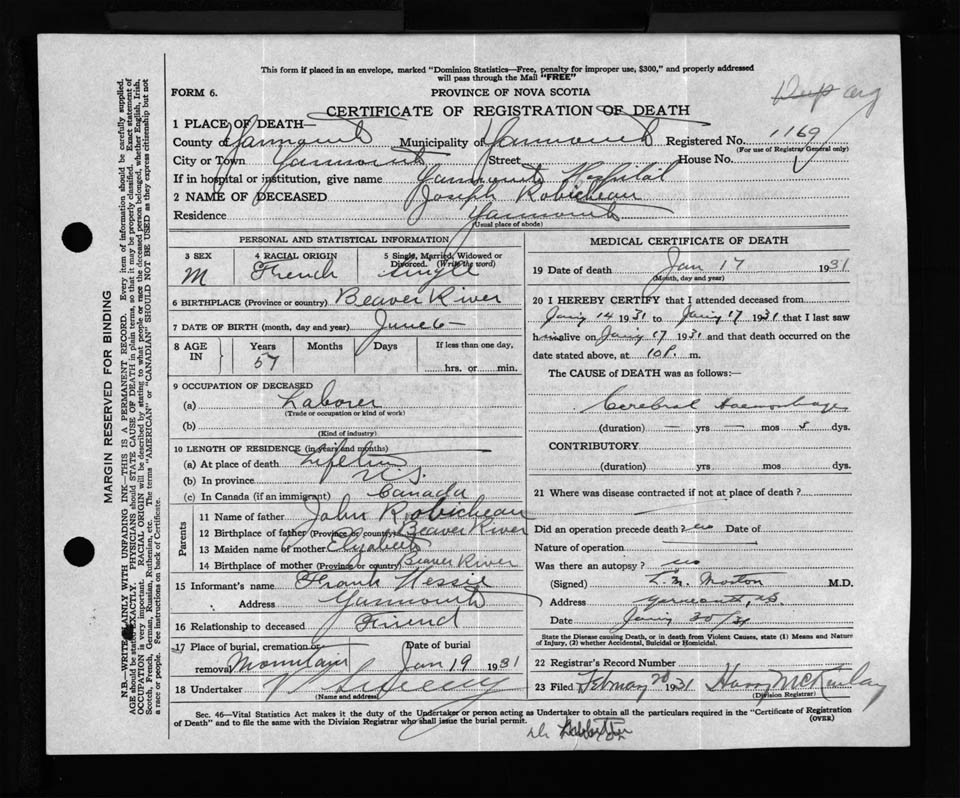 This form if placed in an envelope, marked "Dominion Statistics—Free, penalty for improper use, $300," and properly addressed
will pass through the Mail "FREE"
FORM 6.
PROVINCE OF NOVA SCOTIA
CERTIFICATE OF REGISTRATION OF DEATH
1 PLACE OF DEATH—
County of Yarmouth Municipality of Yarmouth Registered No. 1169
(For use of Registrar General only)
City or Town Yarmouth Street House No.
If in hospital or institution, give name Yarmouth Hospital
2 NAME OF DECEASED Joseph Robicheau
Residence Yarmouth
(Usual place of abode)
PERSONAL AND STATISTICAL INFORMATION
3 SEX M
4 RACIAL ORIGIN French
5 Single, Married, Widowed or Divorced. (Write the word) Single
6 BIRTHPLACE (Province or country) Beaver River
7 DATE OF BIRTH (month, day and year) June 6 —
8 AGE IN Years 57 Months Days If less than one day,
hrs. or min.
9 OCCUPATION OF DECEASED
(a) Laborer
(Trade or occupation or kind of work)
(b)
(Kind of industry)
10 LENGTH OF RESIDENCE (in years and months)
(a) At place of death Lifetime
(b) In province N.S.
(c) In Canada (if an immigrant) Canada
Parents
11 Name of father John Robicheau
12 Birthplace of father (Province or country) Beaver River
13 Maiden name of mother Elizabeth
14 Birthplace of mother (Province or country) Beaver River
15 Informant's name Frank
Address Yarmouth
16 Relationship to deceased Friend
17 Place of burial, cremation or removal Mountain Date of burial Jan 19 1931
18 Undertaker V Sweeny
(Name and address)
MEDICAL CERTIFICATE OF DEATH
19 Date of death Jan 17 1931
(Month, day and year)
20 I HEREBY CERTIFY that I attended deceased from
14 1931 to 17 1931 that I last saw
him alive on 17 1931 and that death occurred on the
date stated above, at 10 P. m.
The CAUSE of DEATH was as follows:—
Cerebral Haemorrhage
(duration) — yrs — mos 5 dys.
CONTRIBUTORY
(duration) yrs mos dys.
21 Where was disease contracted if not at place of death?
Did an operation precede death? no Date of
Nature of operation
Was there an autopsy? no
(Signed) L.M. Morton M.D.
Address Yarmouth, N.S.
Date 30/31
State the Disease causing Death, or in death from Violent Causes, state (1) Means and Nature
of Injury, (2) whether Accidental, Suicidal or Homicidal.
22 Registrar's Record Number
23 Filed February 20 1931 Harry McKinlay
(Division Registrar)
Sec. 46—Vital Statistics Act makes it the duty of the Undertaker or person acting as Undertaker to obtain all the particulars required in the "Certificate of Registration
of Death" and to file the same with the Division Registrar who shall issue the burial permit.
(OVER)
MARGIN RESERVED FOR BINDING
N.B.—WRITE PLAINLY WITH UNFADING INK—THIS IS A PERMANENT RECORD. Every item of information should be carefully supplied.
AGE should be stated EXACTLY. PHYSICIANS should STATE CAUSE OF DEATH in plain terms, so that it may be properly classified. Exact statement of
OCCUPATION is very important. RACIAL ORIGIN will be described by stating to what people or race the deceased person belonged, whether English, Irish,
Scotch, French, German, Russian, Ruthenian, etc. The terms "AMERICAN" or "CANADIAN" SHOULD NOT BE USED as they express citizenship but not
a race or people. See instructions on back of Certificate.